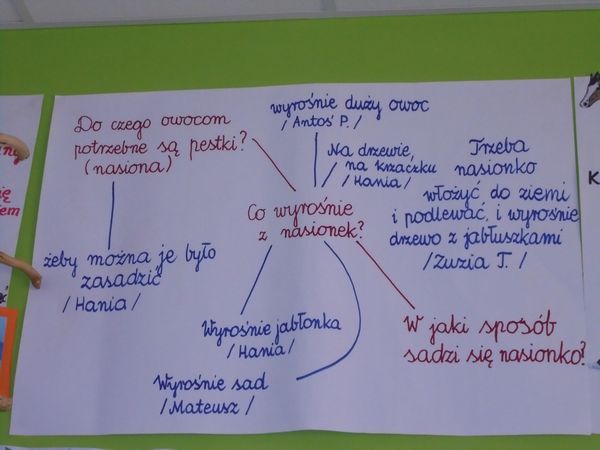 Do czego owocom
potrzebne są pestki?
(nasiona)
żeby można je było
zasadzić
/Hania/
wyrośnie duży owoc
/Antoś P./
Na drzewie,
na krzaczku
/Hania/
Trzeba
nasionko
włożyć do ziemi
i podlewać, i wyrośnie
drzewo z jabłuszkami
/Zuzia T./
Co wyrośnie
z nasionek?
Wyrośnie jabłonka
/Hania/
Wyrośnie sad
/Mateusz/
W jaki sposób
sadzi się nasionko?
K